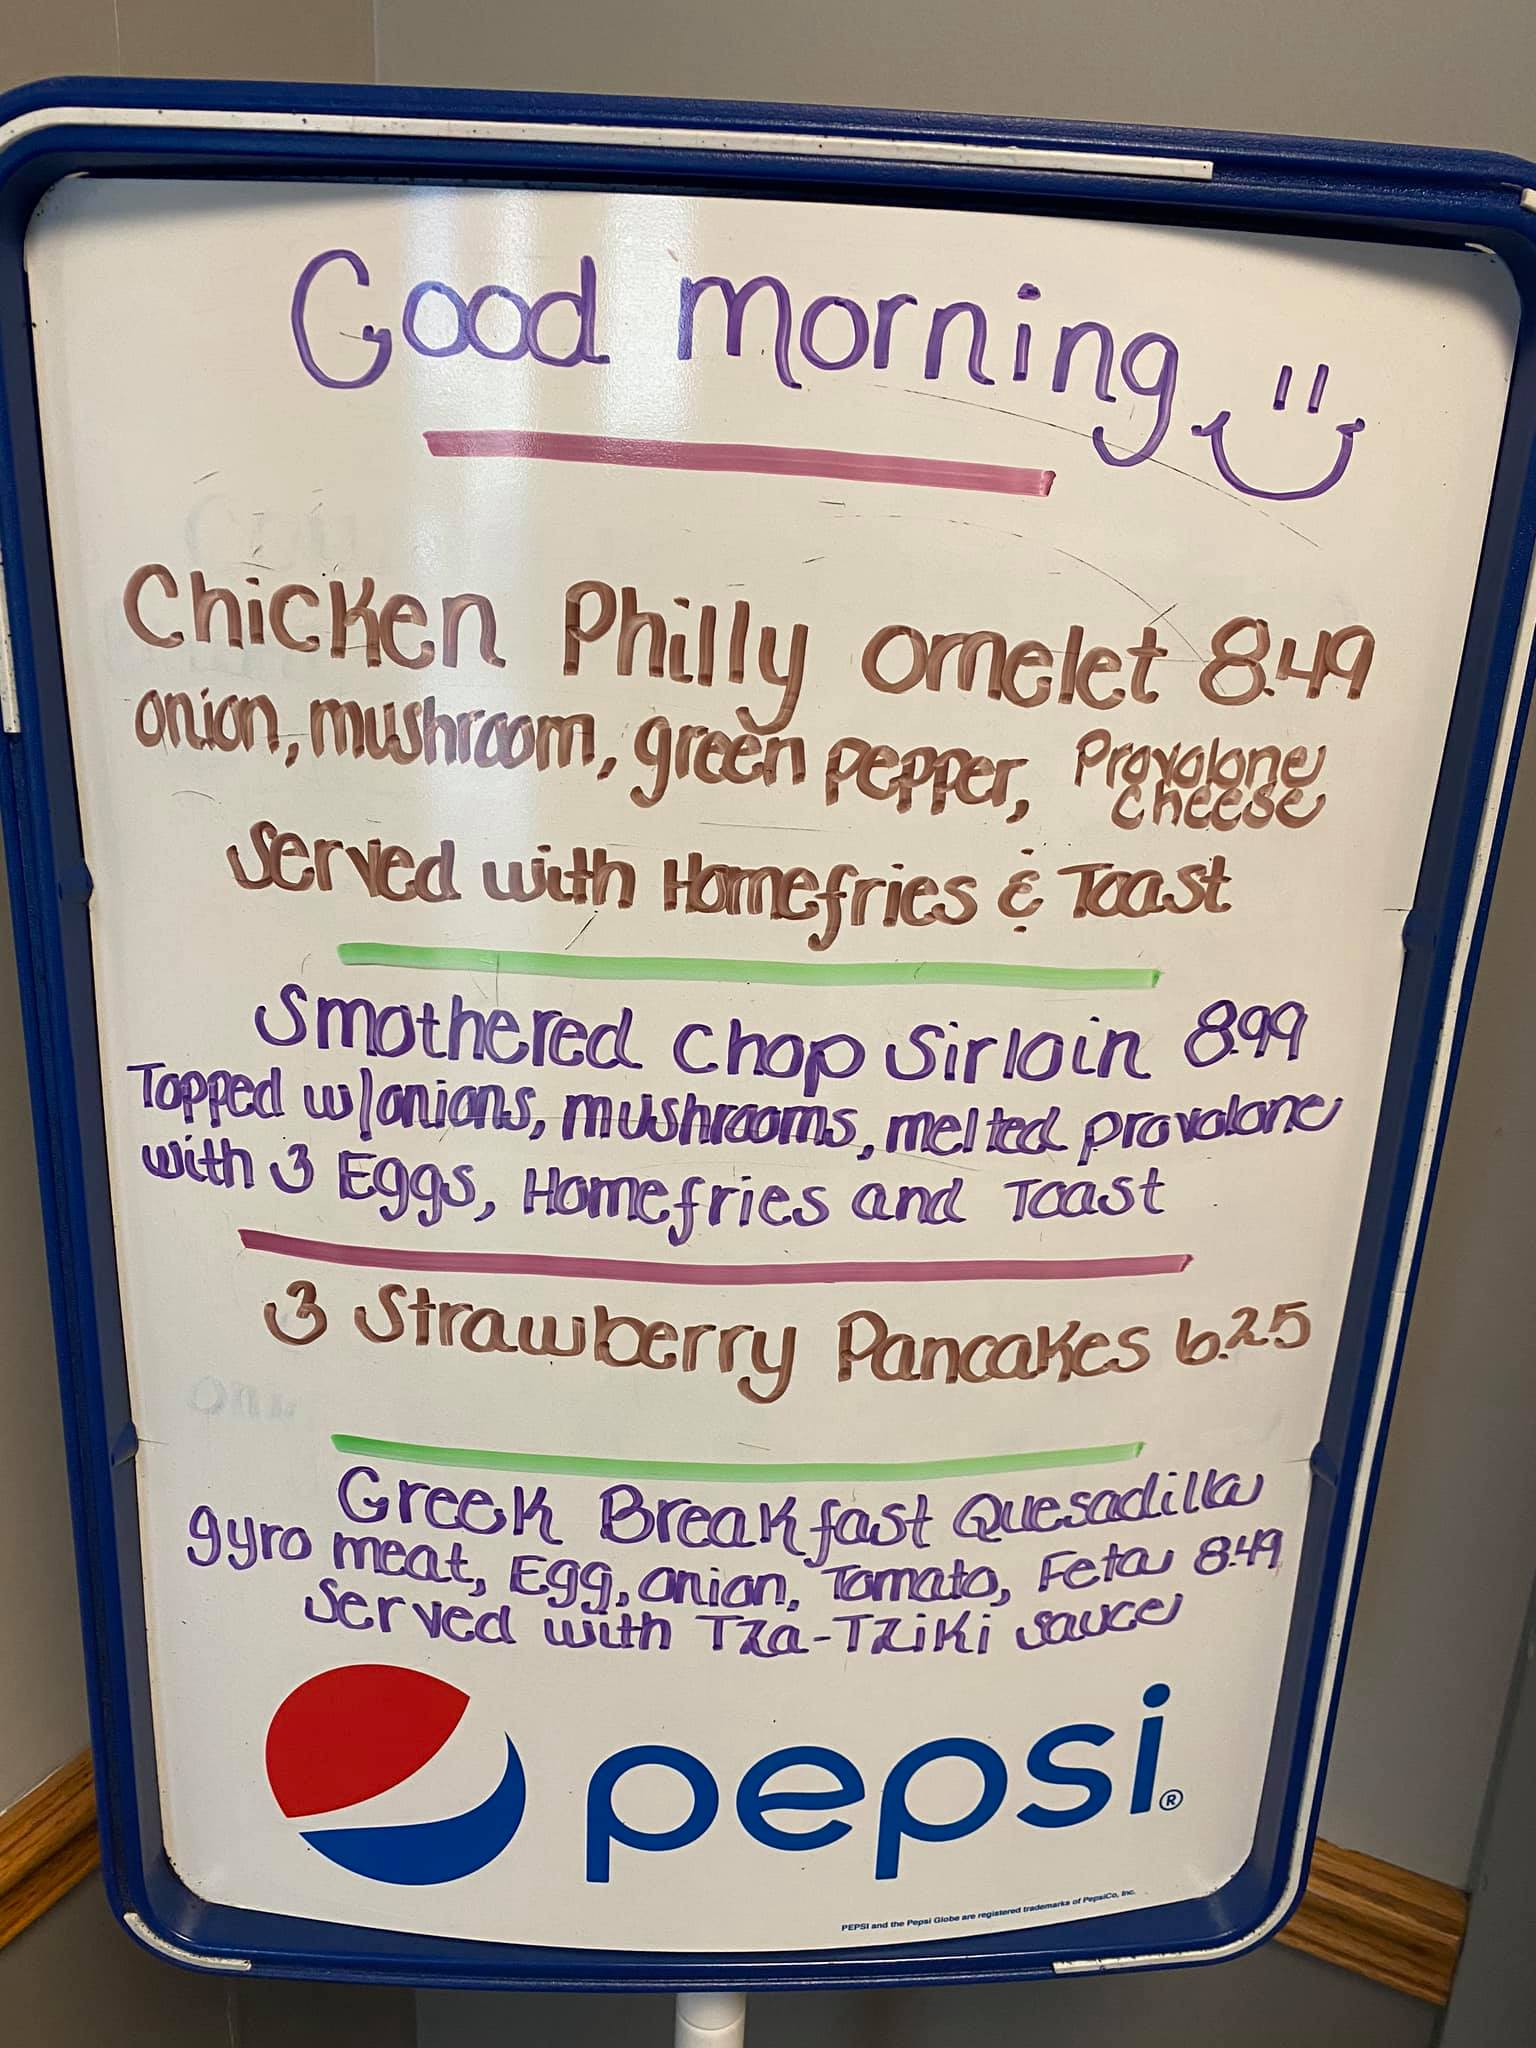 Good morning
Chicken Philly omelet 8.49
onion, mushroom, green pepper, Provolone cheese
Served with Homefries & Toast
Smothered chop Sirloin 8.99
Topped w/onions, mushrooms, melted provolone
with 3 Eggs, Homefries and Toast
3 Strawberry Pancakes 6.25
Greek Breakfast Quesadilla
gyro meat, Egg, onion, Tomato, Feta 8.49
Served with Tza-Tziki sauce
pepsi®
PEPSI and the Pepsi Globe are registered trademarks of PepsiCo, Inc.